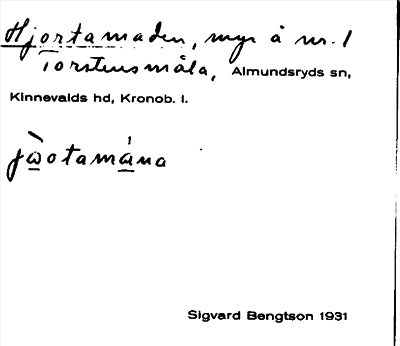 Hjortamaden, myr å nr. 1
Torstensmåla, Almundsryds sn,
Kinnevalds hd, Kronob. l.
jòotamána
Sigvard Bengtson 1931